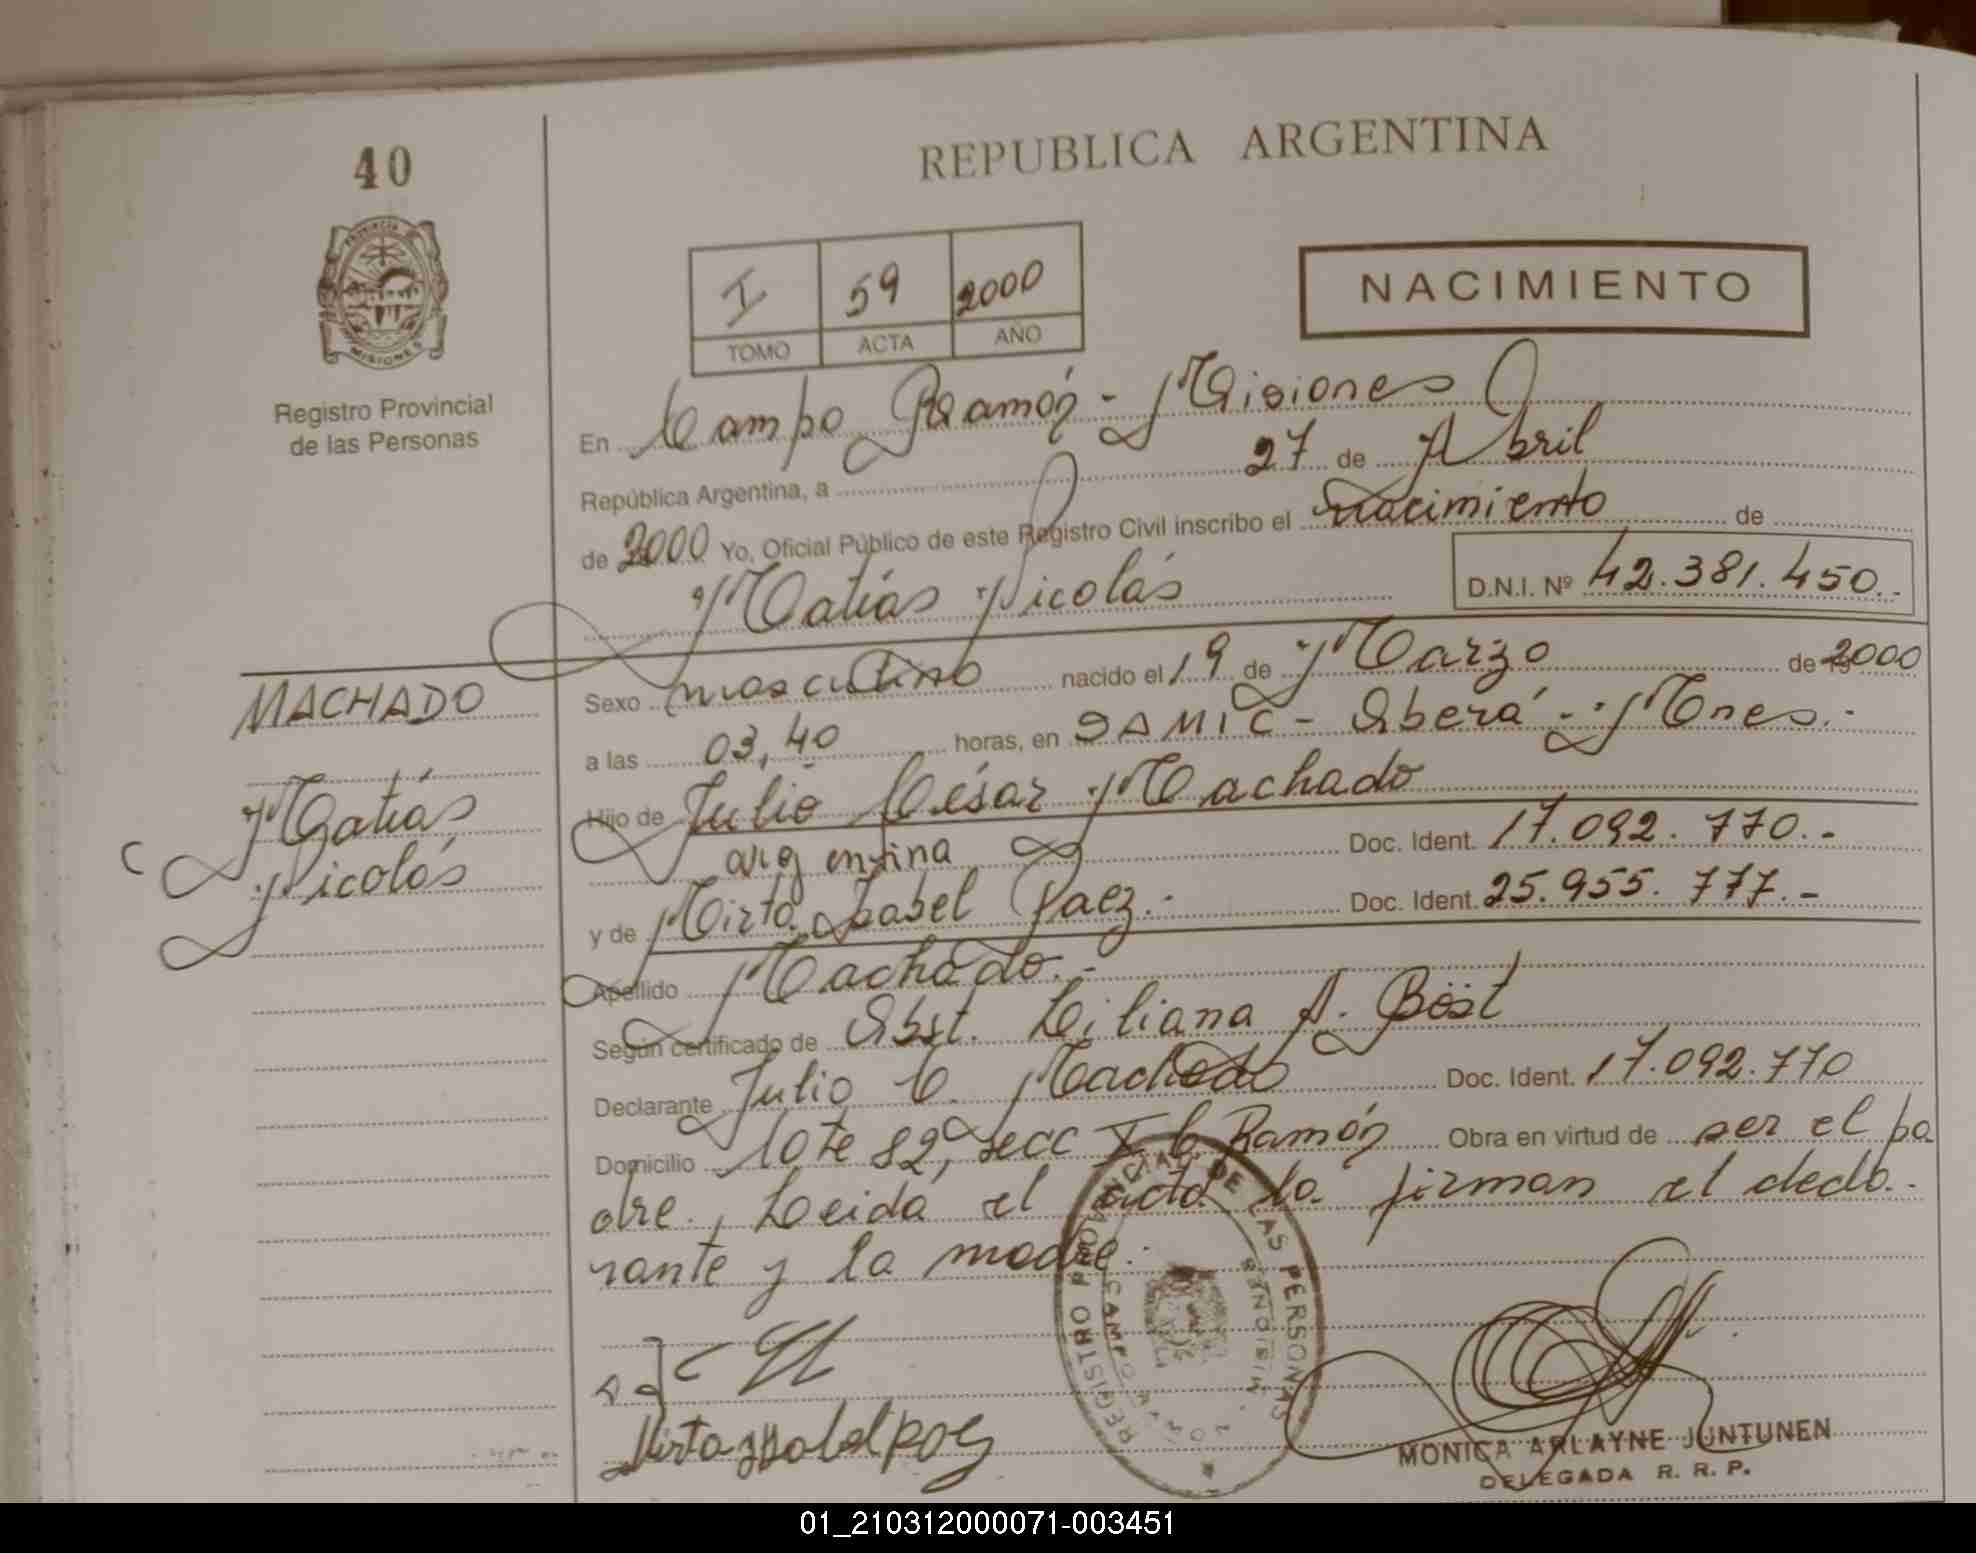 40
REPUBLICA ARGENTINA
PROVINCIA DE
MISIONES
Registro Provincial
de las Personas
I 59 2000
TOMO ACTA AÑO
NACIMIENTO
En Campo Ramón - Misiones
República Argentina, a 27 de Abril
de 2000 Yo, Oficial Público de este Registro Civil inscribo el nacimiento de
Matías Nicolás D.N.I. Nº 42.381.450.-
MACHADO
Matías
Nicolás
Sexo masculino nacido el 19 de Marzo de 2000
a las 03,40 horas, en SAMIC - Oberá - Mnes.-
Hijo de Julio César Machado
argentina Doc. Ident. 17.092.770.-
y de Mirta Isabel Paez.- Doc. Ident. 25.955.777.-
Apellido Machado.-
Según certificado de Obst. Liliana A. Böst
Declarante Julio C. Machado Doc. Ident. 17.092.770
Domicilio lote 82, secc I C. Ramón Obra en virtud de ser el pa
dre., Leída el acta la firman el decla-
rante y la madre.-
REGISTRO PROVINCIAL DE LAS PERSONAS
CAMPO RAMON
MISIONES
Mirta Isabel Paez
MONICA ARLAYNE JUNTUNEN
DELEGADA R. R. P.
01_210312000071-003451